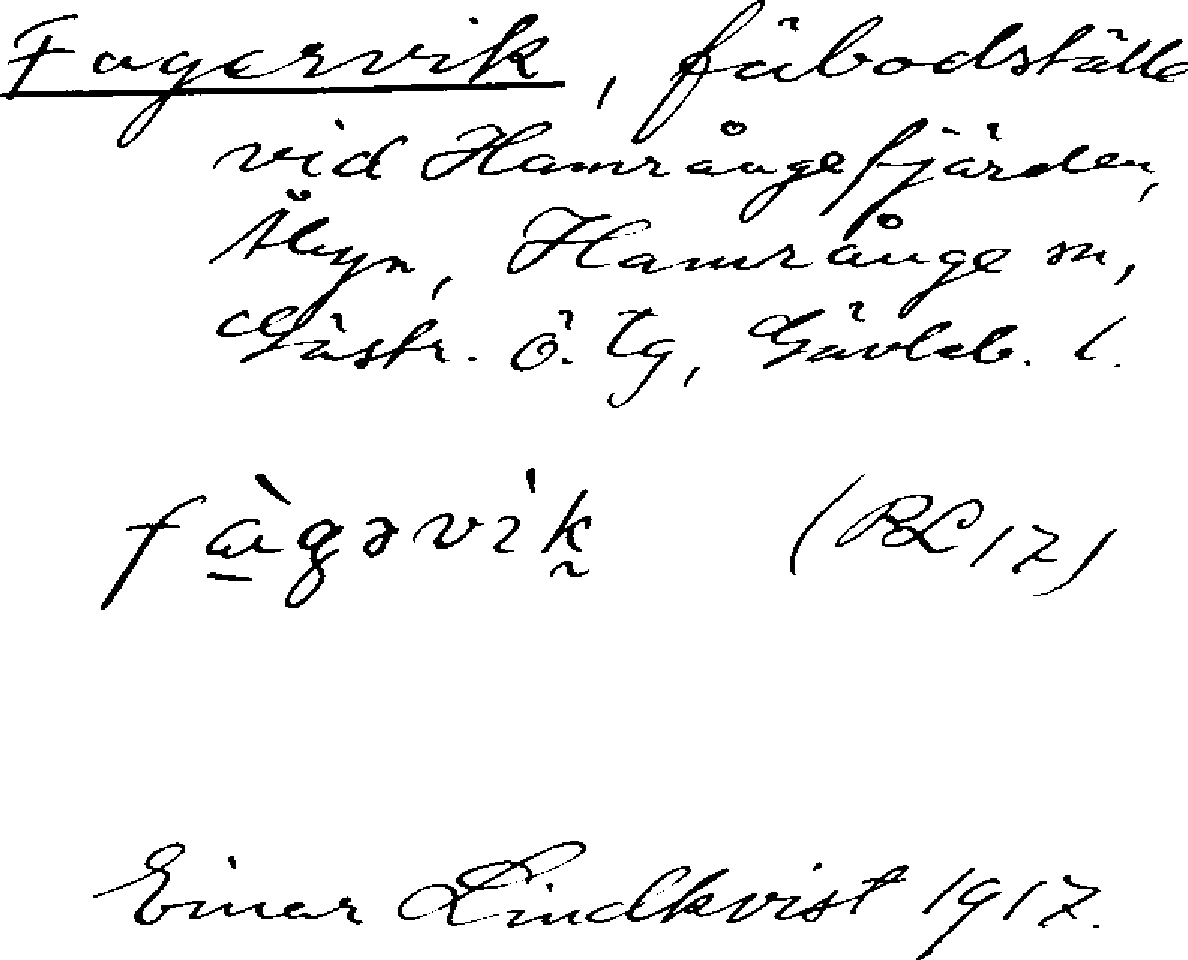 Fagervik, fäbodställe
vid Hamrångefjärden,
Åbyn, Hamrånge sn,
Gästr. ö. tg, Gävleb. l.
fàgəvìk (BL 17)
Einar Lindkvist 1917.